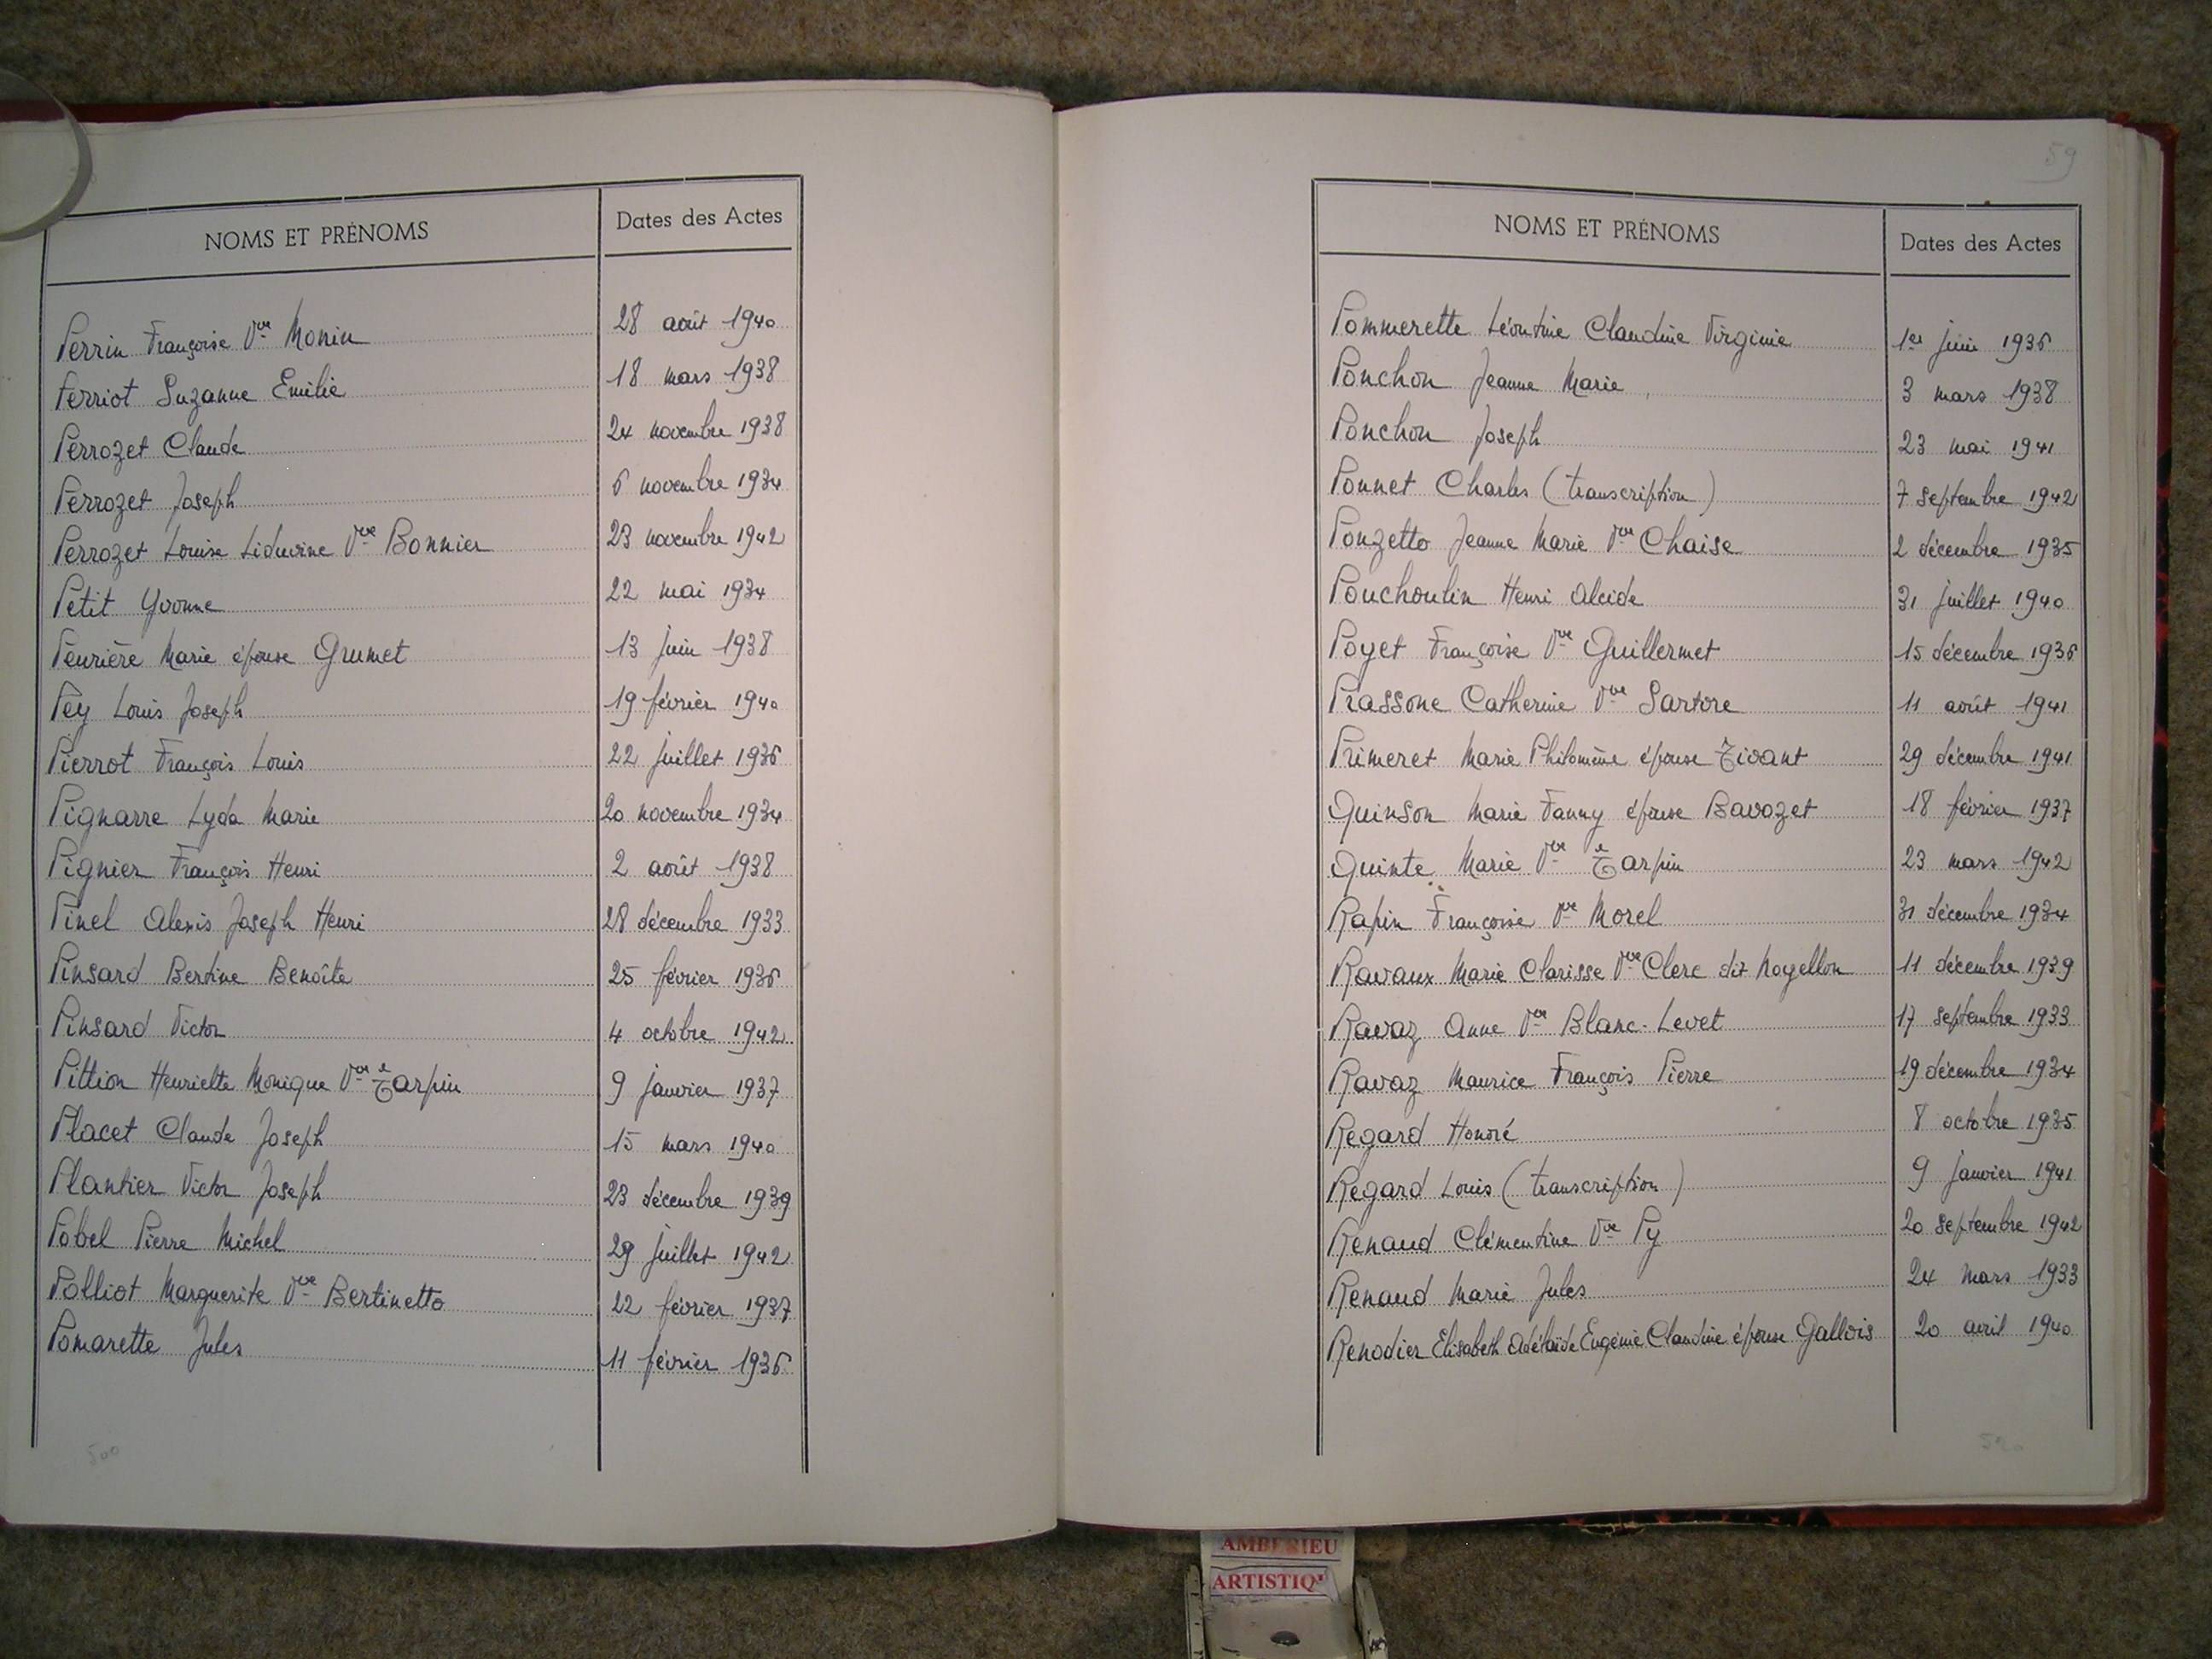 NOMS ET PRÉNOMS Dates des Actes
Perrin Françoise Vve Monin 28 août 1940
Perriot Suzanne Emilie 18 mars 1938
Perrozet Claude 24 novembre 1938
Perrozet Joseph 6 novembre 1934
Perrozet Louise Liduvine Vve Bonnier 23 novembre 1942
Petit Yvonne 22 mai 1934
Peurière Marie épouse Grumet 13 juin 1938
Pey Louis Joseph 19 février 1940
Pierrot François Louis 22 juillet 1936
Pignarre Lyda Marie 20 novembre 1934
Pignier François Henri 2 août 1938
Pinel Alexis Joseph Henri 28 décembre 1933
Pinsard Bertine Benoîte 25 février 1936
Pinsard Victor 4 octobre 1942
Pittion Henriette Monique Vve Tarpin 9 janvier 1937
Placet Claude Joseph 15 mars 1940
Plantier Victor Joseph 23 décembre 1939
Pobel Pierre Michel 29 juillet 1942
Polliot Marguerite Vve Bertinetto 22 février 1937
Pomarette Jules 11 février 1936
500
59
NOMS ET PRÉNOMS Dates des Actes
Pommerette Léontine Claudine Virginie 1er juin 1936
Ponchon Jeanne Marie 3 mars 1938
Ponchon Joseph 23 mai 1941
Ponnet Charles (transcription) 7 septembre 1942
Ponzetto Jeanne Marie Vve Chaise 2 décembre 1935
Pouchoulin Henri Alcide 31 juillet 1940
Poyet Françoise Vve Guillermet 15 décembre 1936
Prassone Catherine Vve Sartore 11 août 1941
Primeret Marie Philomène épouse Tivant 29 décembre 1941
Quinson Marie Fanny épouse Bavozet 18 février 1937
Quinte Marie Vve Tarpin 23 mars 1942
Rapin Françoise Vve Morel 31 décembre 1934
Ravaux Marie Clarisse Vve Clerc dit Noyellon 11 décembre 1939
Ravaz Anne Vve Blanc-Levet 17 septembre 1933
Ravaz Maurice François Pierre 19 décembre 1934
Regard Honoré 8 octobre 1935
Regard Louis (transcription) 9 janvier 1941
Renaud Clémentine Vve Py 20 septembre 1942
Renaud Marie Jules 24 mars 1933
Renodier Elisabeth Adélaïde Eugénie Claudine épouse Gallois 20 avril 1940
AMBERIEU
ARTISTIQ